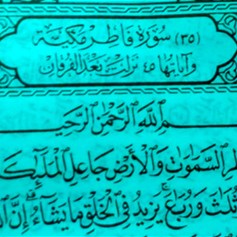 (٣٥) سُورَةُ فَاطِرٍ مَكِّيَّة
وَآيَاتُهَا ٤٥ نَزَلَتْ بَعْدَ الْفُرْقَانِ
ـمِ اللَّهِ الرَّحْمَٰنِ الرَّحِيـ
ـطِرِ السَّمَٰوَٰتِ وَالْأَرْضِ جَاعِلِ الْمَلَٰٓئِكَةِ
ثُلَٰثَ وَرُبَٰعَ يَزِيدُ فِى الْخَلْقِ مَا يَشَآءُ إِنَّ اللَّـ